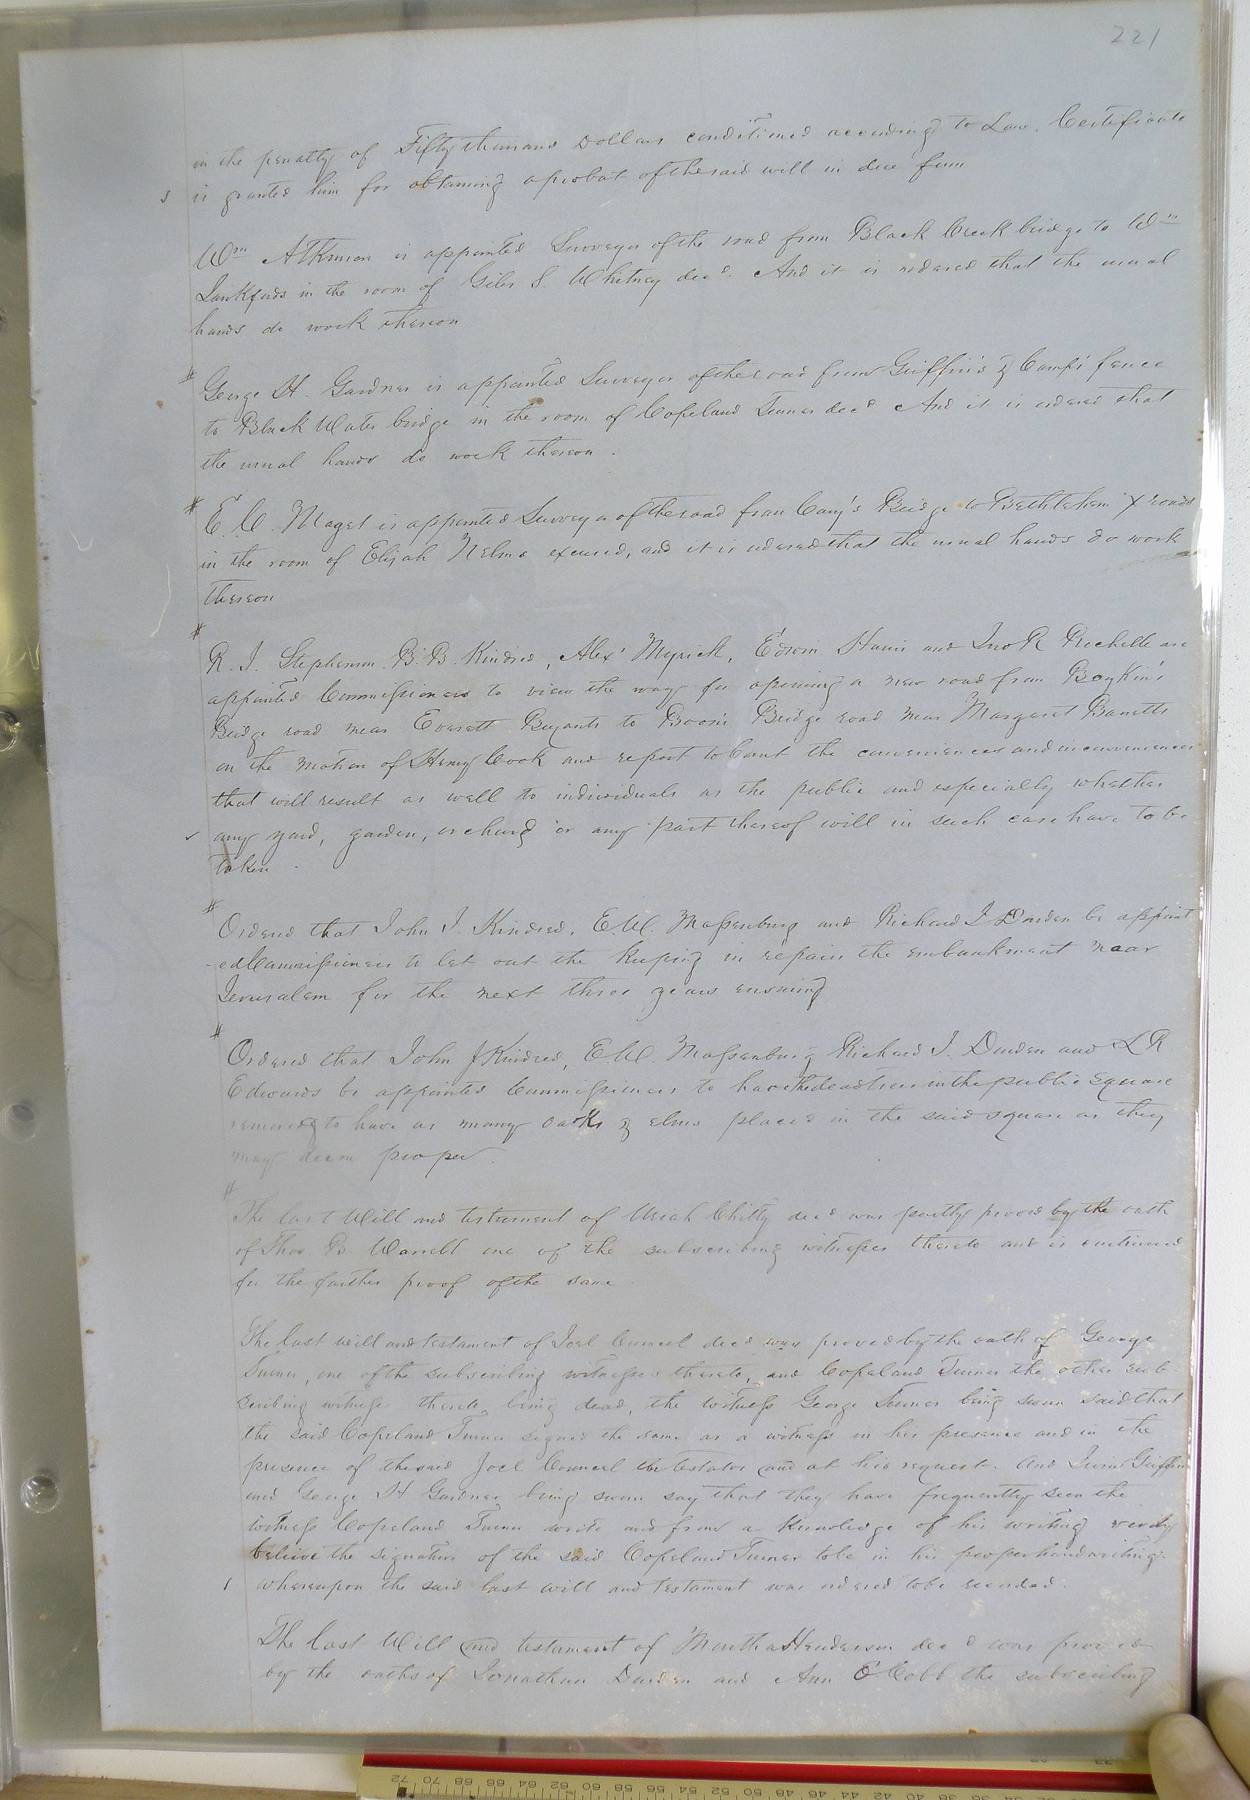 221
in the penalty of Fifty thousand Dollars conditioned according to Law. Certificate
is granted him for obtaining a probat of the said will in due form
Wm Atkinson is appointed Surveyor of the road from Black Creek bridge to Wm
Lankfords in the room of Giles S. Whitney decd. And it is ordered that the usual
hands do work thereon
George H. Gardner is appointed Surveyor of the road from Griffin's & Camp's fence
to Black Water bridge in the room of Copeland Turner decd And it is ordered that
the usual hands do work thereon.
E. W. Maget is appointed Surveyor of the road from Cary's Bridge to Bethlehem X roads
in the room of Elijah Nelms excused, and it is ordered that the usual hands do work
thereon
R. J. Stephenson B. B. Kindred, Alexr Myrick, Edwin Harris and Jno R Rochelle are
appointed Commissioners to view the way for opening a new road from Boykin's
Bridge road near Everett Bryants to Bridge road near Margaret Barretts
on the motion of Henry Cook and report to Court the conveniences and inconveniences
that will result as well to individuals as the public and especially whether
any yard, garden, orchard or any part thereof will in such case have to be
taken.
Ordered that John J. Kindred, E. W. Massenburg and Richard J Darden be appoint
-ed Commissioners to let out the keeping in repair the embankment near
Jerusalem for the next three years ensuing
Ordered that John J Kindred, E W. Massenburg Richard J. Darden and L R
Edwards be appointed Commissioners to have the dead trees in the public square
removed & to have as many oaks & elms placed in the said square as they
may deem proper.
The last Will and testament of Uriah Chitty decd was partly proved by the oath
of Thos. B. Worrell one of the subscribing witnesses thereto and is continued
for the further proof of the same
The last will and testament of Joel Council decd was proved by the oath of George
Turner, one of the subscribing witnesses thereto, and Copeland Turner the other sub-
scribing witness thereto being dead, the witness George Turner being sworn said that
the said Copeland Turner signed the same as a witness in his presence and in the
presence of the said Joel Council the testator and at his request. And Griffin
and George H Gardner being sworn say that they have frequently seen the
witness Copeland Turner write and from a knowledge of his writing verily
believe the signature of the said Copeland Turner to be in his proper handwriting.
whereupon the said last will and testament was ordered to be recorded.
The last Will and testament of Martha Henderson decd was proved
by the oaths of Jonathan Darden and Ann E Cobb the subscribing
72 70 68 66 64 62 60 58 56 54 52 50 48 46 44 42 40 38 36 34 32